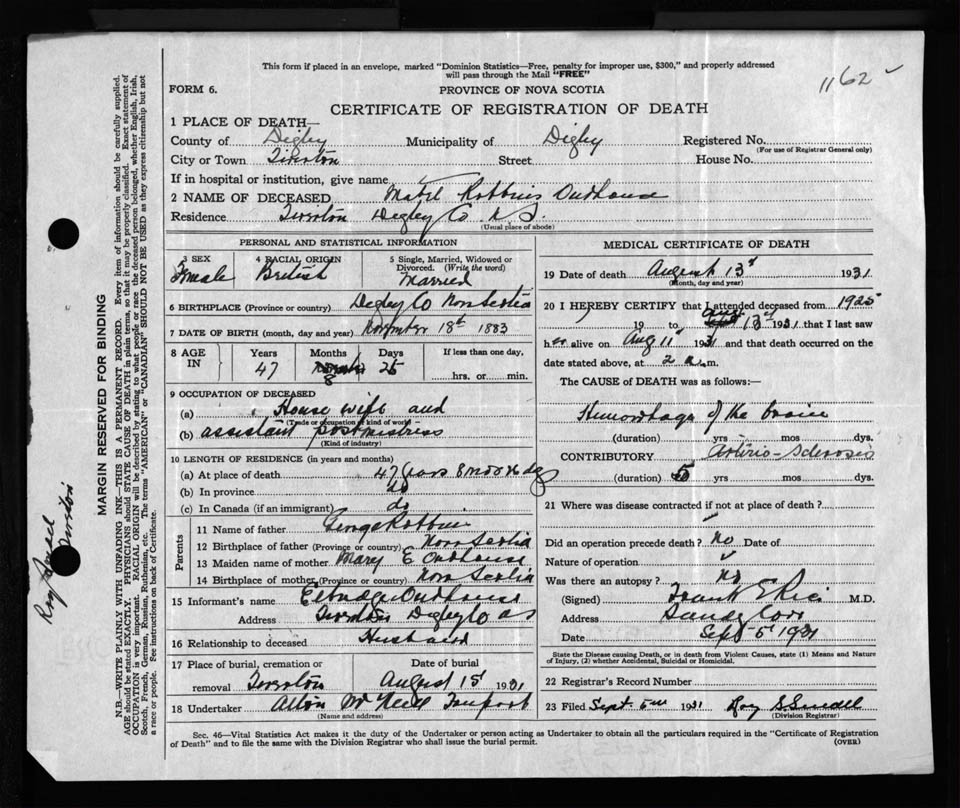 This form if placed in an envelope, marked "Dominion Statistics—Free, penalty for improper use, $300," and properly addressed
will pass through the Mail "FREE"
1162
FORM 6.
PROVINCE OF NOVA SCOTIA
CERTIFICATE OF REGISTRATION OF DEATH
1 PLACE OF DEATH—
County of Digby Municipality of Digby Registered No.
(For use of Registrar General only)
City or Town Tiverton Street House No.
If in hospital or institution, give name
2 NAME OF DECEASED Mabel Robbins Outhouse
Residence Tiverton Digby Co N S.
(Usual place of abode)
PERSONAL AND STATISTICAL INFORMATION
3 SEX 4 RACIAL ORIGIN 5 Single, Married, Widowed or
Divorced. (Write the word)
Female British Married
6 BIRTHPLACE (Province or country) Digby Co Nova Scotia
7 DATE OF BIRTH (month, day and year) November 18th 1883
8 AGE IN Years Months Days If less than one day,
47 8 25 hrs. or min.
9 OCCUPATION OF DECEASED
(a) House wife and
(Trade or occupation or kind of work)
(b) assistant postmistress
(Kind of industry)
10 LENGTH OF RESIDENCE (in years and months)
(a) At place of death 47 years 8 mos
(b) In province do
(c) In Canada (if an immigrant) do
Parents
11 Name of father George Robbins
12 Birthplace of father (Province or country) Nova Scotia
13 Maiden name of mother Mary E Outhouse
14 Birthplace of mother (Province or country) Nova Scotia
15 Informant's name Elbridge Outhouse
Address Tiverton Digby Co
16 Relationship to deceased Husband
17 Place of burial, cremation or Date of burial
removal Tiverton August 15 1931
18 Undertaker Alton McNeill Freeport
(Name and address)
MEDICAL CERTIFICATE OF DEATH
19 Date of death August 13 1931
(Month, day and year)
20 I HEREBY CERTIFY that I attended deceased from 1925
19 to Aug 13 1931 that I last saw
her alive on Aug 11 1931 and that death occurred on the
date stated above, at 2 a.m.
The CAUSE of DEATH was as follows:
Hemorrhage of the brain
(duration) yrs mos dys.
CONTRIBUTORY Arterio-Sclerosis
(duration) 5 yrs mos dys.
21 Where was disease contracted if not at place of death?
Did an operation precede death? No Date of
Nature of operation
Was there an autopsy? No
(Signed) Frank E Rice M.D.
Address Sandy Cove
Date Sept 5 1931
State the Disease causing Death, or in death from Violent Causes, state (1) Means and Nature
of Injury, (2) whether Accidental, Suicidal or Homicidal.
22 Registrar's Record Number
23 Filed Sept 5th 1931 Roy S Smeall
(Division Registrar)
Sec. 46—Vital Statistics Act makes it the duty of the Undertaker or person acting as Undertaker to obtain all the particulars required in the "Certificate of Registration
of Death" and to file the same with the Division Registrar who shall issue the burial permit. (OVER)
MARGIN RESERVED FOR BINDING
N.B.—WRITE PLAINLY WITH UNFADING INK—THIS IS A PERMANENT RECORD. Every item of information should be carefully supplied.
AGE should be stated EXACTLY. PHYSICIANS should STATE CAUSE OF DEATH in plain terms, so that it may be properly classified. Exact statement of
OCCUPATION is very important. RACIAL ORIGIN will be described by stating to what people or race the deceased person belonged, whether English, Irish,
Scotch, French, German, Russian, Ruthenian, etc. The terms "AMERICAN" or "CANADIAN" SHOULD NOT BE USED as they express citizenship but not
a race or people. See instructions on back of Certificate.
Roy
Tiverton